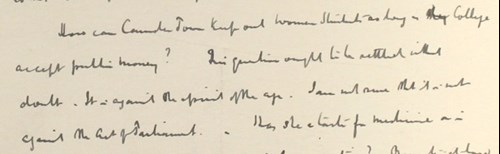 How can Camden Town keep out women students as long as they College
accept public money? This question ought to be settled without
doubt. It is against the spirit of the age. I am not sure that it is not
against the Act of Parliament. Has she a taste for medicine or is